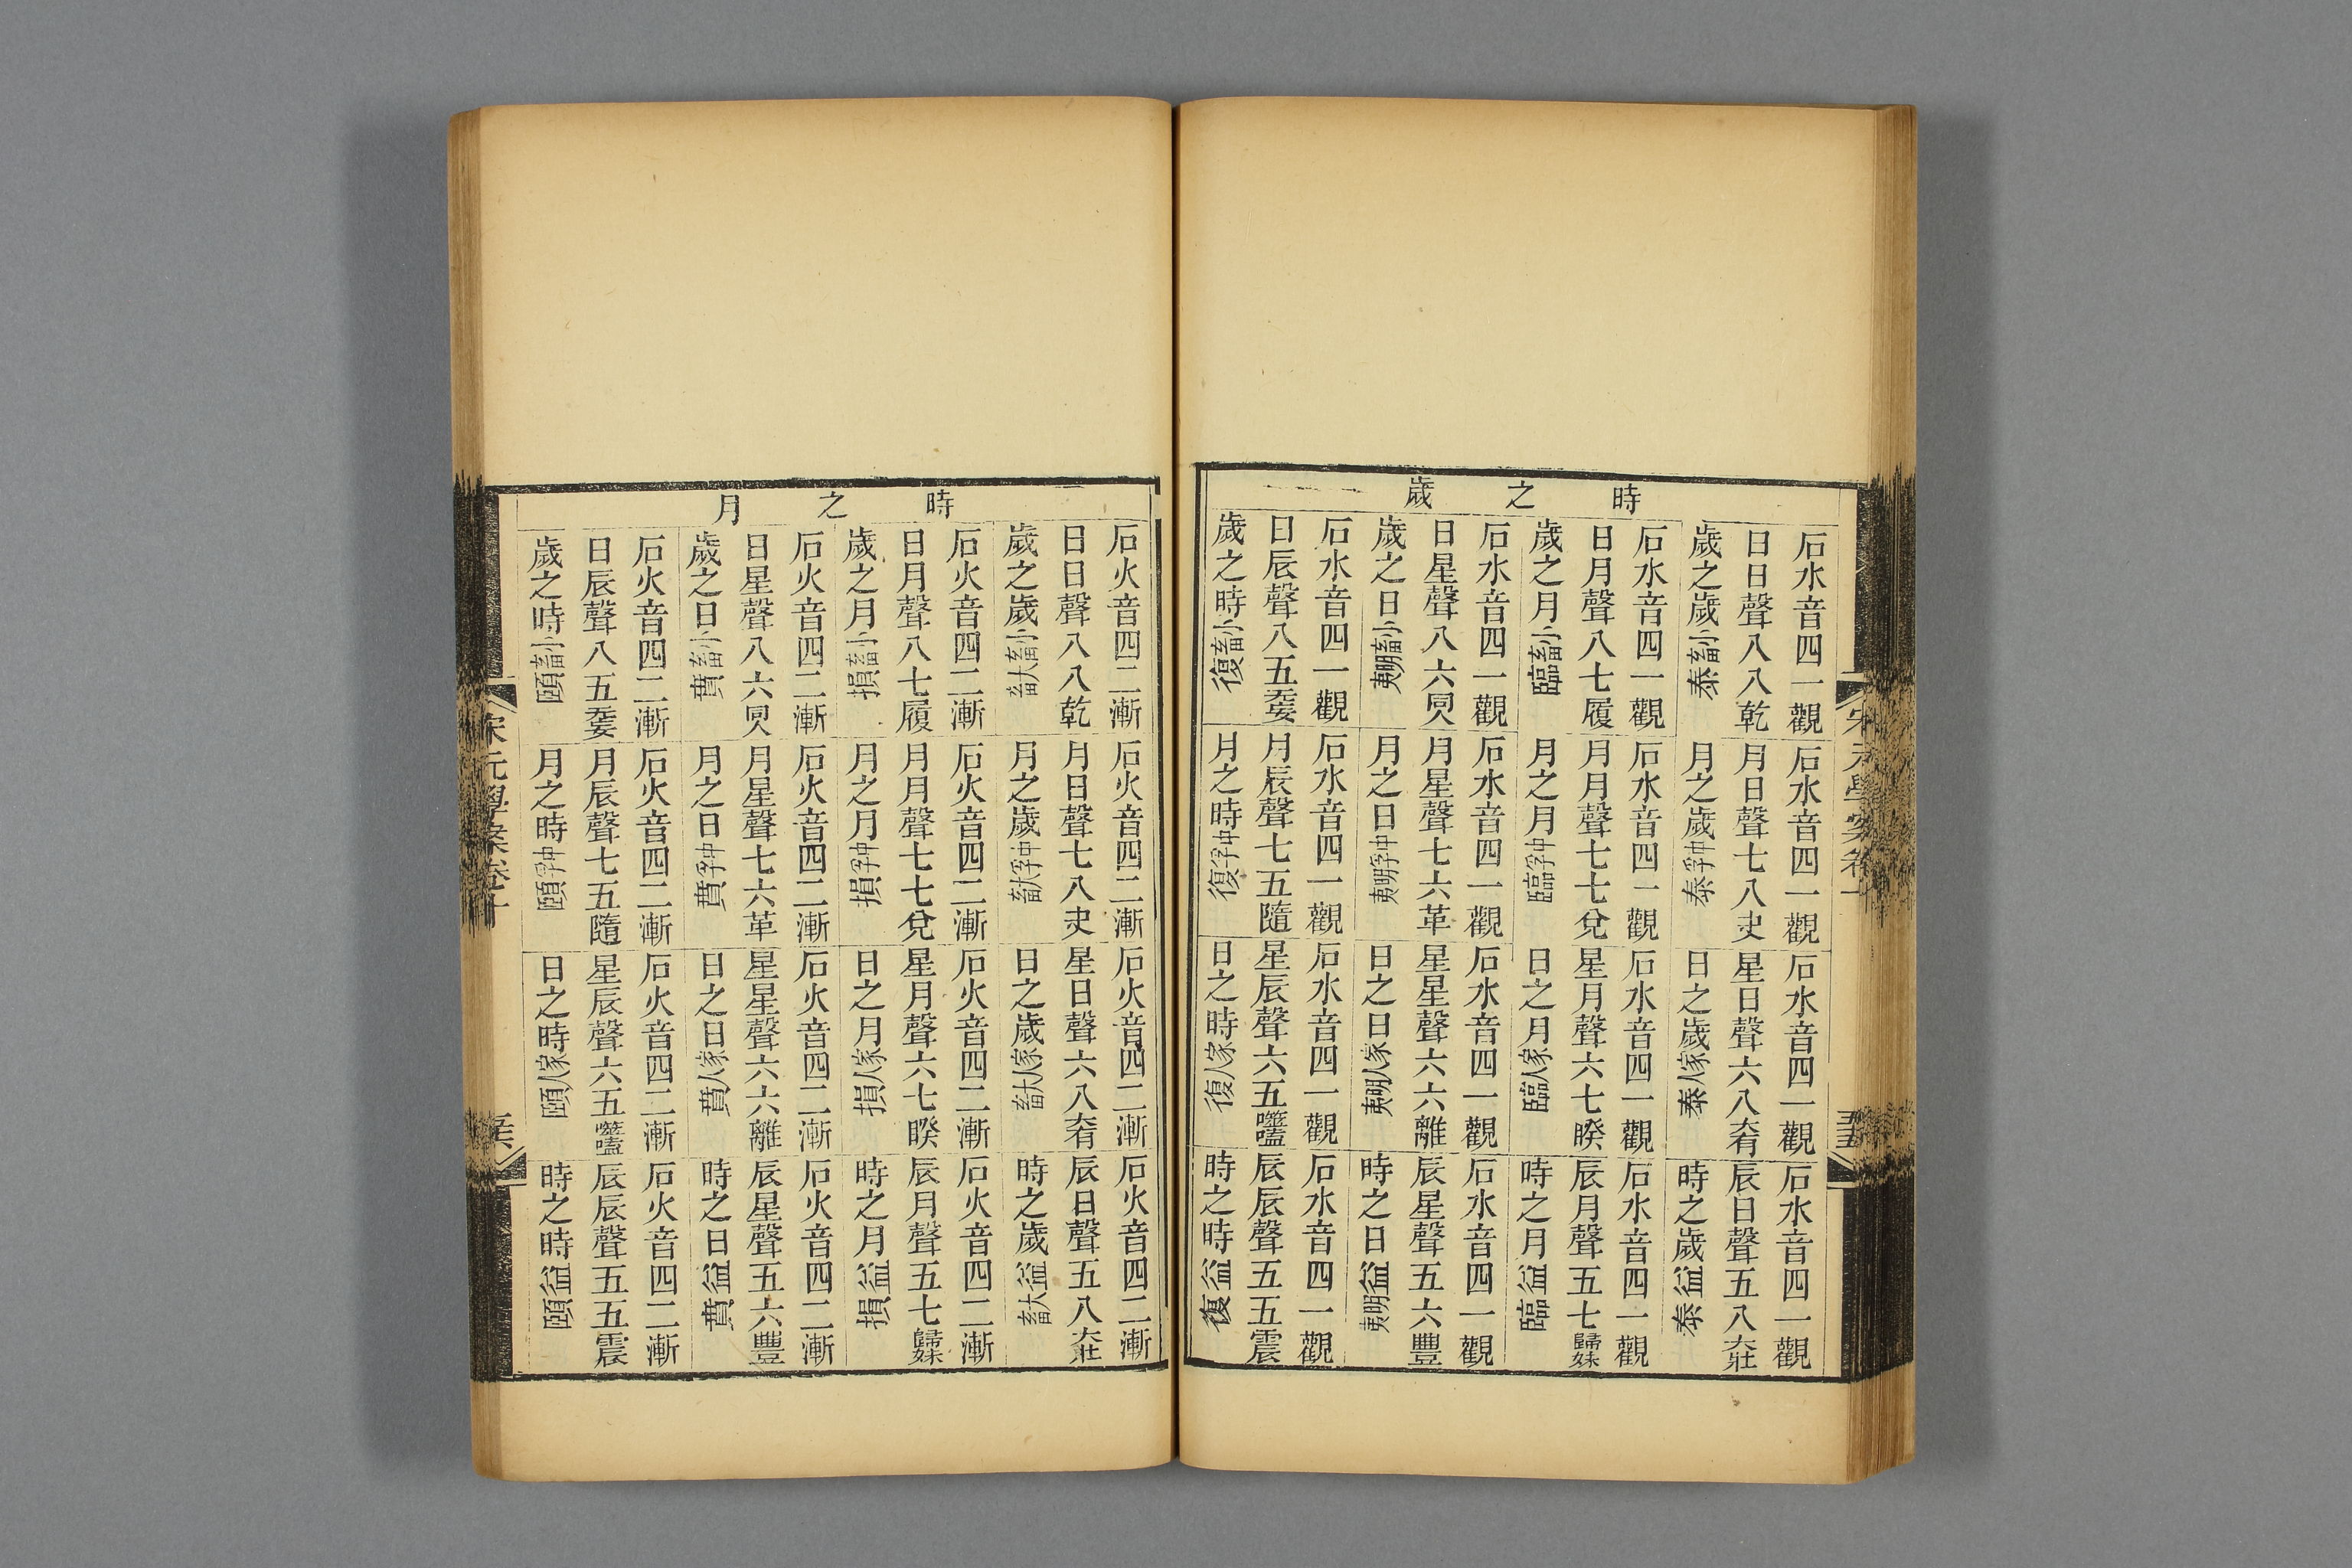 宋元學案卷十
五五
時之歲
石水音四一觀 石水音四一觀 石水音四一觀 石水音四一觀
日日聲八八乾 月日聲七八夬 星日聲六八大有 辰日聲五八大壯
歲之歲小畜泰 月之歲中孚泰 日之歲家人泰 時之歲益泰
石水音四一觀 石水音四一觀 石水音四一觀 石水音四一觀
日月聲八七履 月月聲七七兌 星月聲六七睽 辰月聲五七歸妹
歲之月小畜臨 月之月中孚臨 日之月家人臨 時之月益臨
石水音四一觀 石水音四一觀 石水音四一觀 石水音四一觀
日星聲八六同人 月星聲七六革 星星聲六六離 辰星聲五六豐
歲之日小畜明夷 月之日中孚明夷 日之日家人明夷 時之日益明夷
石水音四一觀 石水音四一觀 石水音四一觀 石水音四一觀
日辰聲八五无妄 月辰聲七五隨 星辰聲六五噬嗑 辰辰聲五五震
歲之時小畜復 月之時中孚復 日之時家人復 時之時益復
時之月
石火音四二漸 石火音四二漸 石火音四二漸 石火音四二漸
日日聲八八乾 月日聲七八夬 星日聲六八大有 辰日聲五八大壯
歲之歲小畜大畜 月之歲中孚大畜 日之歲家人大畜 時之歲益大畜
石火音四二漸 石火音四二漸 石火音四二漸 石火音四二漸
日月聲八七履 月月聲七七兌 星月聲六七睽 辰月聲五七歸妹
歲之月小畜損 月之月中孚損 日之月家人損 時之月益損
石火音四二漸 石火音四二漸 石火音四二漸 石火音四二漸
日星聲八六同人 月星聲七六革 星星聲六六離 辰星聲五六豐
歲之日小畜賁 月之日中孚賁 日之日家人賁 時之日益賁
石火音四二漸 石火音四二漸 石火音四二漸 石火音四二漸
日辰聲八五无妄 月辰聲七五隨 星辰聲六五噬嗑 辰辰聲五五震
歲之時小畜頤 月之時中孚頤 日之時家人頤 時之時益頤
宋元學案卷十